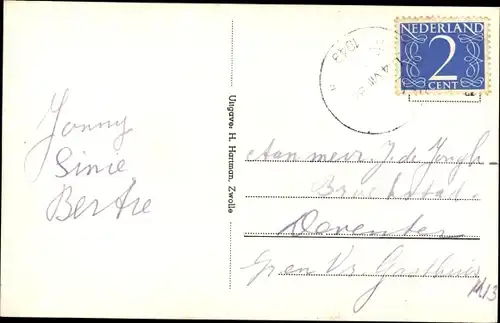 Jonny
Sinie
Bertie
Uitgave: H. Hartman, Zwolle
NEDERLAND
2
CENT
1948
Aan mevr. J. de Jongh
Deventer
Gr en Vr Gasthuis
M13